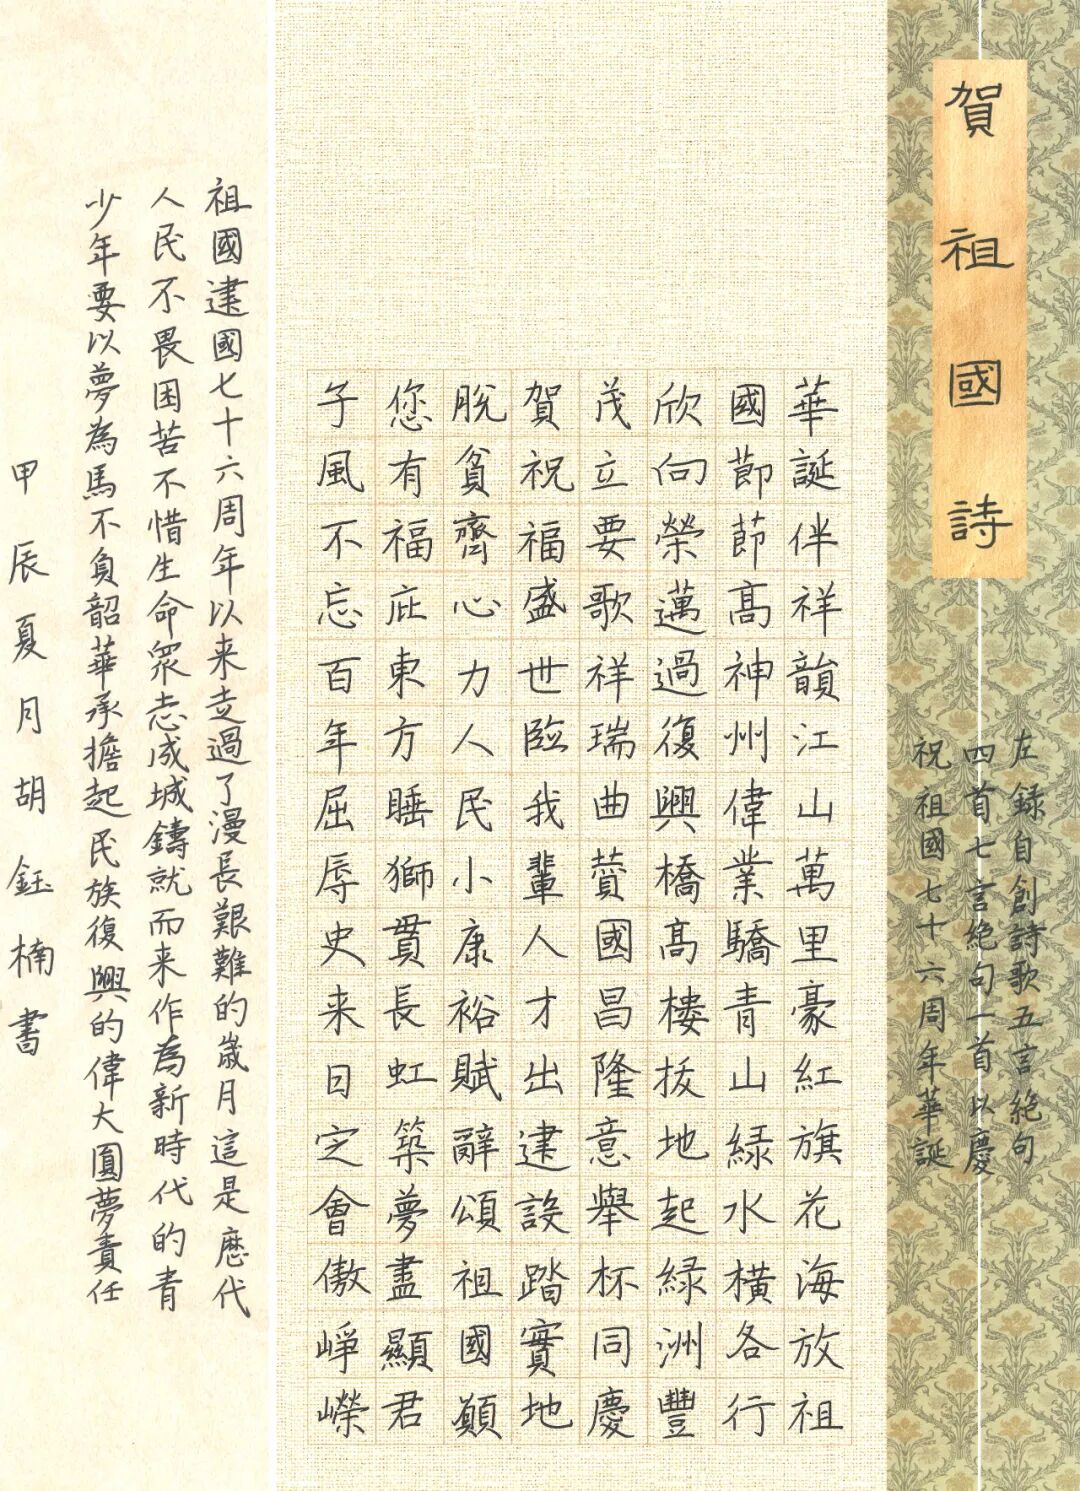 賀祖國詩
左録自創詩歌五言絶句
四首七言絶句一首以慶
祝祖國七十六周年華誕
華誕伴祥韻江山萬里豪紅旗花海放祖
國節節高神州偉業驕青山緑水橫各行
欣向榮邁過復興橋高樓拔地起緑洲豐
茂立要歌祥瑞曲贊國昌隆意舉杯同慶
賀祝福盛世臨我輩人才出建設踏實地
脫貧齊心力人民小康裕賦辭頌祖國願
您有福庇東方睡獅貫長虹築夢盡顯君
子風不忘百年屈辱史来日定會傲崢嶸
祖國建國七十六周年以来走過了漫長艱難的歲月這是歷代
人民不畏困苦不惜生命衆志成城鑄就而来作為新時代的青
少年要以夢為馬不負韶華承擔起民族復興的偉大圓夢責任
甲辰夏月胡鈺楠書